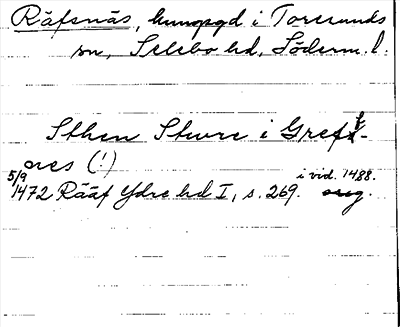 Räfsnäs, kungsgd i Toresunds
sn, Selebo hd, Söderm. l.
Sthen Sture i Grefs-
nes (!)
5/9 1472 Rääf Ydre hd I, s. 269. i vid. 1488.